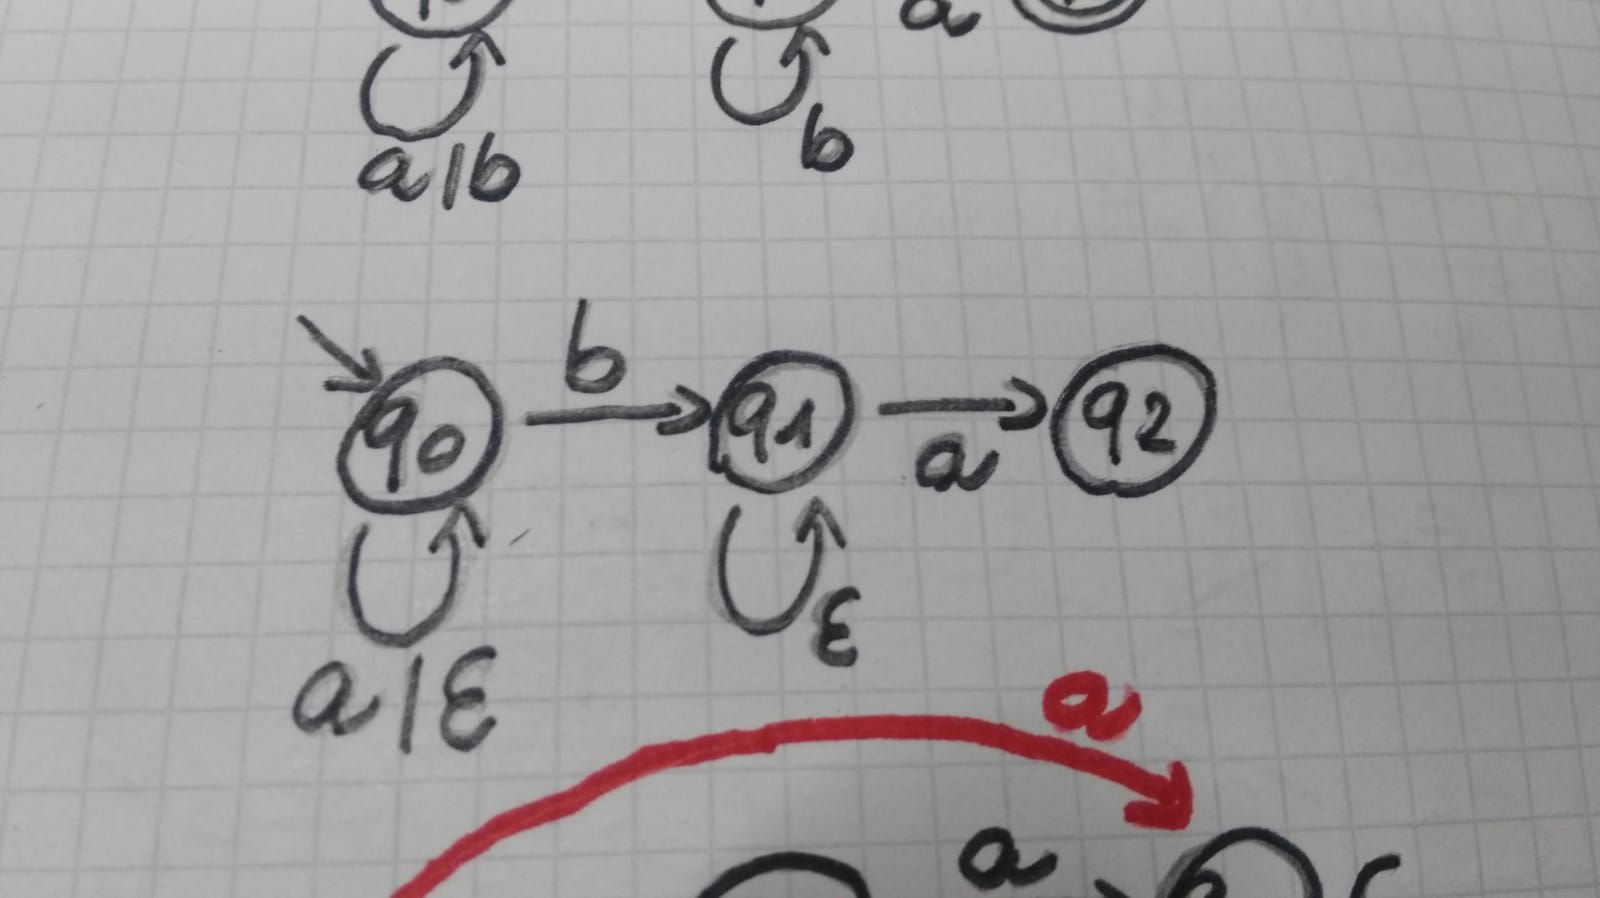 a
a|b
b
b
q0
q1
q2
a
a|ε
ε
a
a